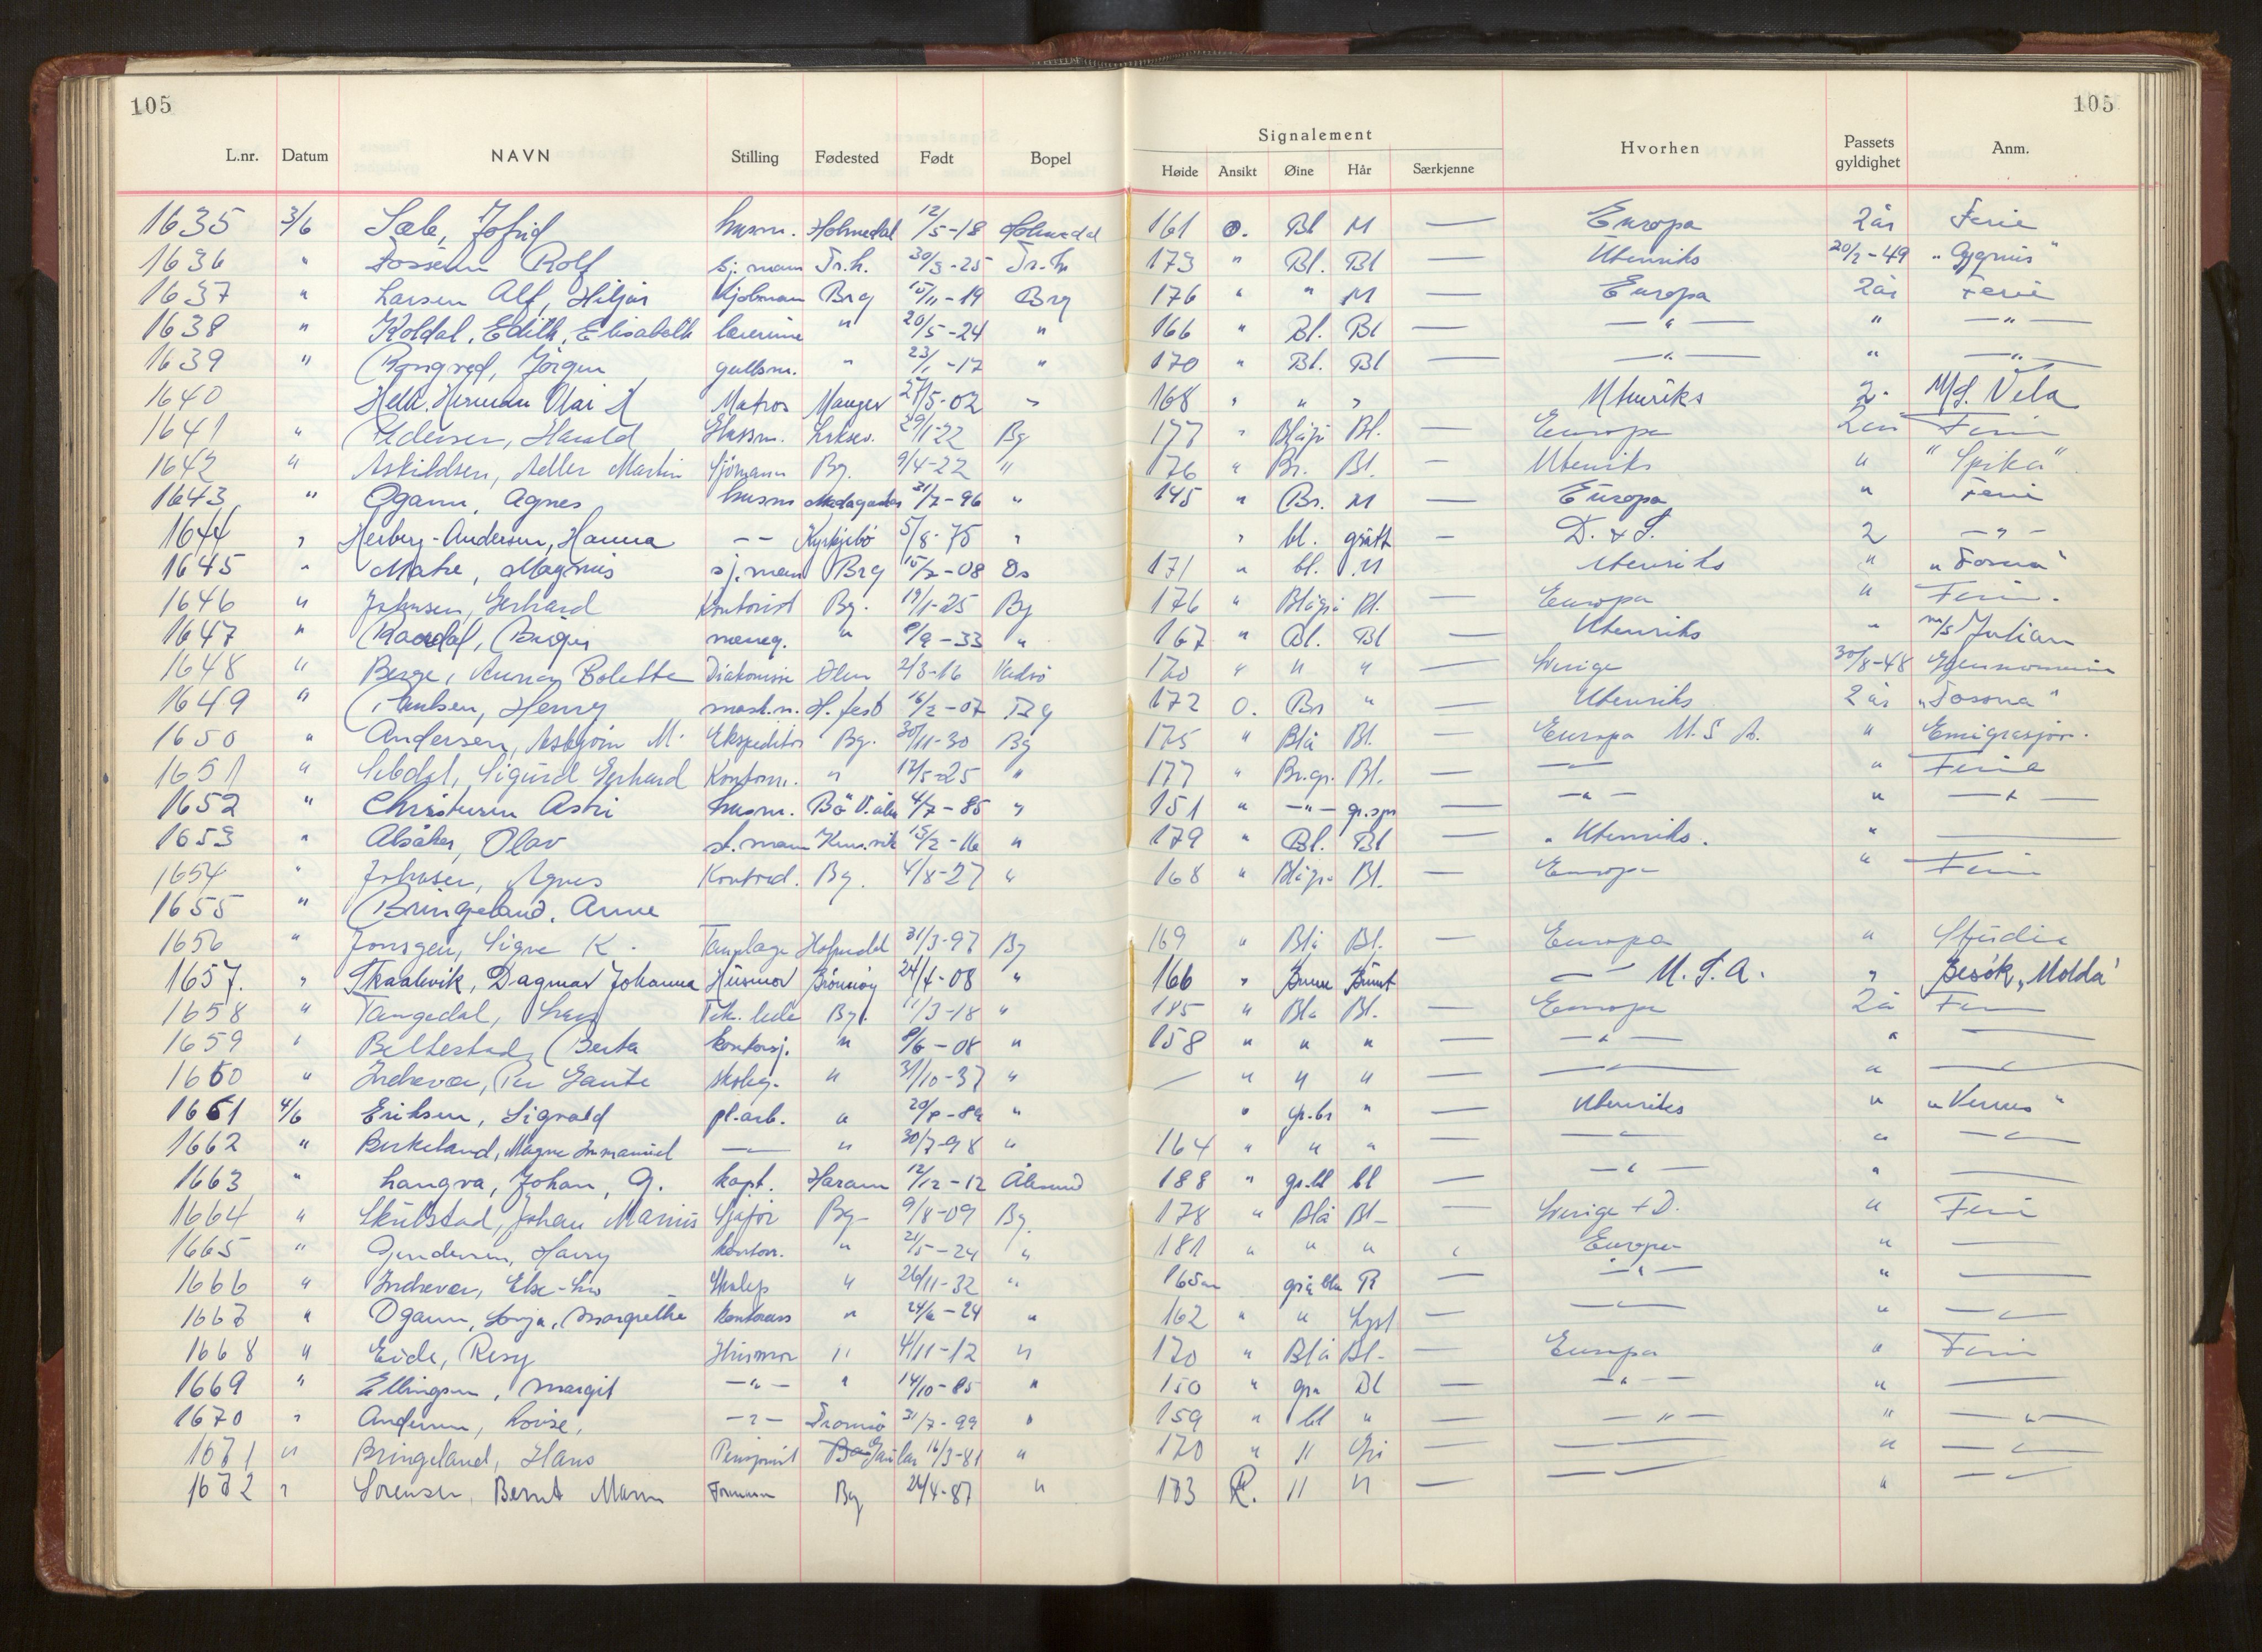 105 105
Signalement
L.nr. Datum NAVN Stilling Fødested Født Bopel Høide Ansikt Øine Hår Særkjenne Hvorhen Passets gyldighet Anm.
1635 3/6 Sæle, Jofrid husm. Holmedal 12/5-18 Holmedal 161 O. Bl M — Europa 2 år Ferie
1636 " Fosseum Rolf sj.mann Tr.h. 30/3-25 Tr.h. 173 " Bl. Bl — Utenriks 20/2-49 "Cygnus"
1637 " Larsen Alf, Hiljar Kjøbmann Brg 15/11-19 Brg 176 " " M — Europa 2 år Ferie
1638 " Koldal, Edith, Elisabeth lærerinne " 20/5-24 " 166 " Bl. Bl — — " — " — " —
1639 " Rongved, Jørgen gullsm. " 23/1-17 " 170 " Bl. Bl — — " — " — " —
1640 Helk. Herman Olai A Matros Manger 27/5-02 " 168 " " " Utenriks 2 - M/S. Vela
1641 " Pedersen, Harald Lyksev. 29/1-22 Bg 177 " Blågr Bl. — Europa 2 år Ferie
1642 " Askildsen, Adler Martin Sjømann Bg. 9/4-22 " 176 " Br. Bl. — Utenriks " "Spika"
1643 " Ogann, Agnes husm Madagaskar 31/7-96 " 145 " Br. M — Europa " Ferie
1644 " Herberg-Andersen, Hanna — — Kyrkjebø 5/8-75 " " bl. grått — D. & S. 2 — " —
1645 " Matre, Magnus sj.mann Brg 15/2-08 Os 171 " bl. M Utenriks " "Fosna"
1646 " Johnsen, Gerhard Kontorist Bg. 19/1-25 Bg 176 " Blågr Bl. — Europa " Ferie.
1647 " Raadal, Birger messeg. " 8/9-33 " 167 " Bl. Bl — Utenriks " m/s Julian
1648 " Berge, Anna Bolette Diakonisse Ølen 2/3-16 Vadsø 170 " " " — Sverige 30/8-48
1649 " Paulsen, Henry mask.m. H.fest 16/2-07 Bg 172 O. Br " — Utenriks 2 år "Fosna"
1650 " Andersen, Asbjørn M. Ekspeditør Bg. 30/11-30 Bg 175 " Blå Bl. — Europa U.S.A. " Emigrasjon.
1651 " Sebdal, Sigurd Gerhard Kontorm. " 12/5-25 " 177 " Br.gr. Bl. — — " — " Ferie
1652 " Christensen Astri husm. Bø V.ålen 4/7-85 " 151 " — " — gr.spr — — " — " — " —
1653 " Alsåker, Olav st.mann Kvin.vik 15/2-16 " 179 " Bl. Bl — Utenriks. " —
1654 " Johnsen, Agnes Kontord. Bg. 4/8-27 " 168 " Blågr Bl. — Europa " Ferie
1655 " Bringeland, Anne
1656 " Jonsgen, Signe K. Holmedal 31/3-97 Bg 169 " Blå Bl. — Europa " Studie
1657. " Skaalevik, Dagmar Johanna Husmor Brönnöy 24/4-08 " 166 " Brune Brunt — " — U.S.A. " Besök "Molda"
1658 " Tangedal, Tek. lede Bg. 11/3-18 " 185 " Blå Bl. — Europa 2 år Ferie
1659 " Beltestad, Berta kontorsj. " 8/6-08 " 158 " " " — — " — " —
1660 " Indrevær, Per Gaute skoleg. " 31/10-37 " — " " " — — " — " — " —
1661 4/6 Eriksen, Sigvald pl.arb. " 20/8-89 " " gr.br " — Utenriks " "Venus"
1662 " Birkeland, Magne Immanuel — " — " 30/7-98 " 164 " " " — — " — " — " —
1663 " Langva, Johan, G. kapt. Haram 12/12-12 Ålesund 188 " gr.bl bl — — " — " —
1664 " Skulstad, Johan Marius Sjåfør Bg. 9/8-09 Bg. 178 " Blå Bl. — Sverige + D. " Ferie
1665 " Gundersen, Harry kontor. " 21/5-24 " 181 " " " " Europa " —
1666 " Indrevær, Else-Liv Skolep. " 26/11-32 " 165 gråblå R — — " — " —
1667 " Ogann, Sonja, Margrethe kontorass " 24/6-24 " 162 " " Lyst — — " — " — " —
1668 " Eide, Resy Husmor " 4/11-12 " 170 " Blå Bl. — Europa " Ferie
1669 " Ellingsen, Margit — " — " 14/10-85 " 150 " grå Bl — — " — " —
1670 " Andersen, Lovise, — " — Tromsø 31/7-99 " 159 " bl " — — " — " — " —
1671 " Bringeland, Hans Pensjonist Gaular 16/3-81 " 170 " " Grå — — " — " — " —
1672 " Sorensen, Bernt Formann Bg 24/4-87 " 173 R. " " — — " — " — " —